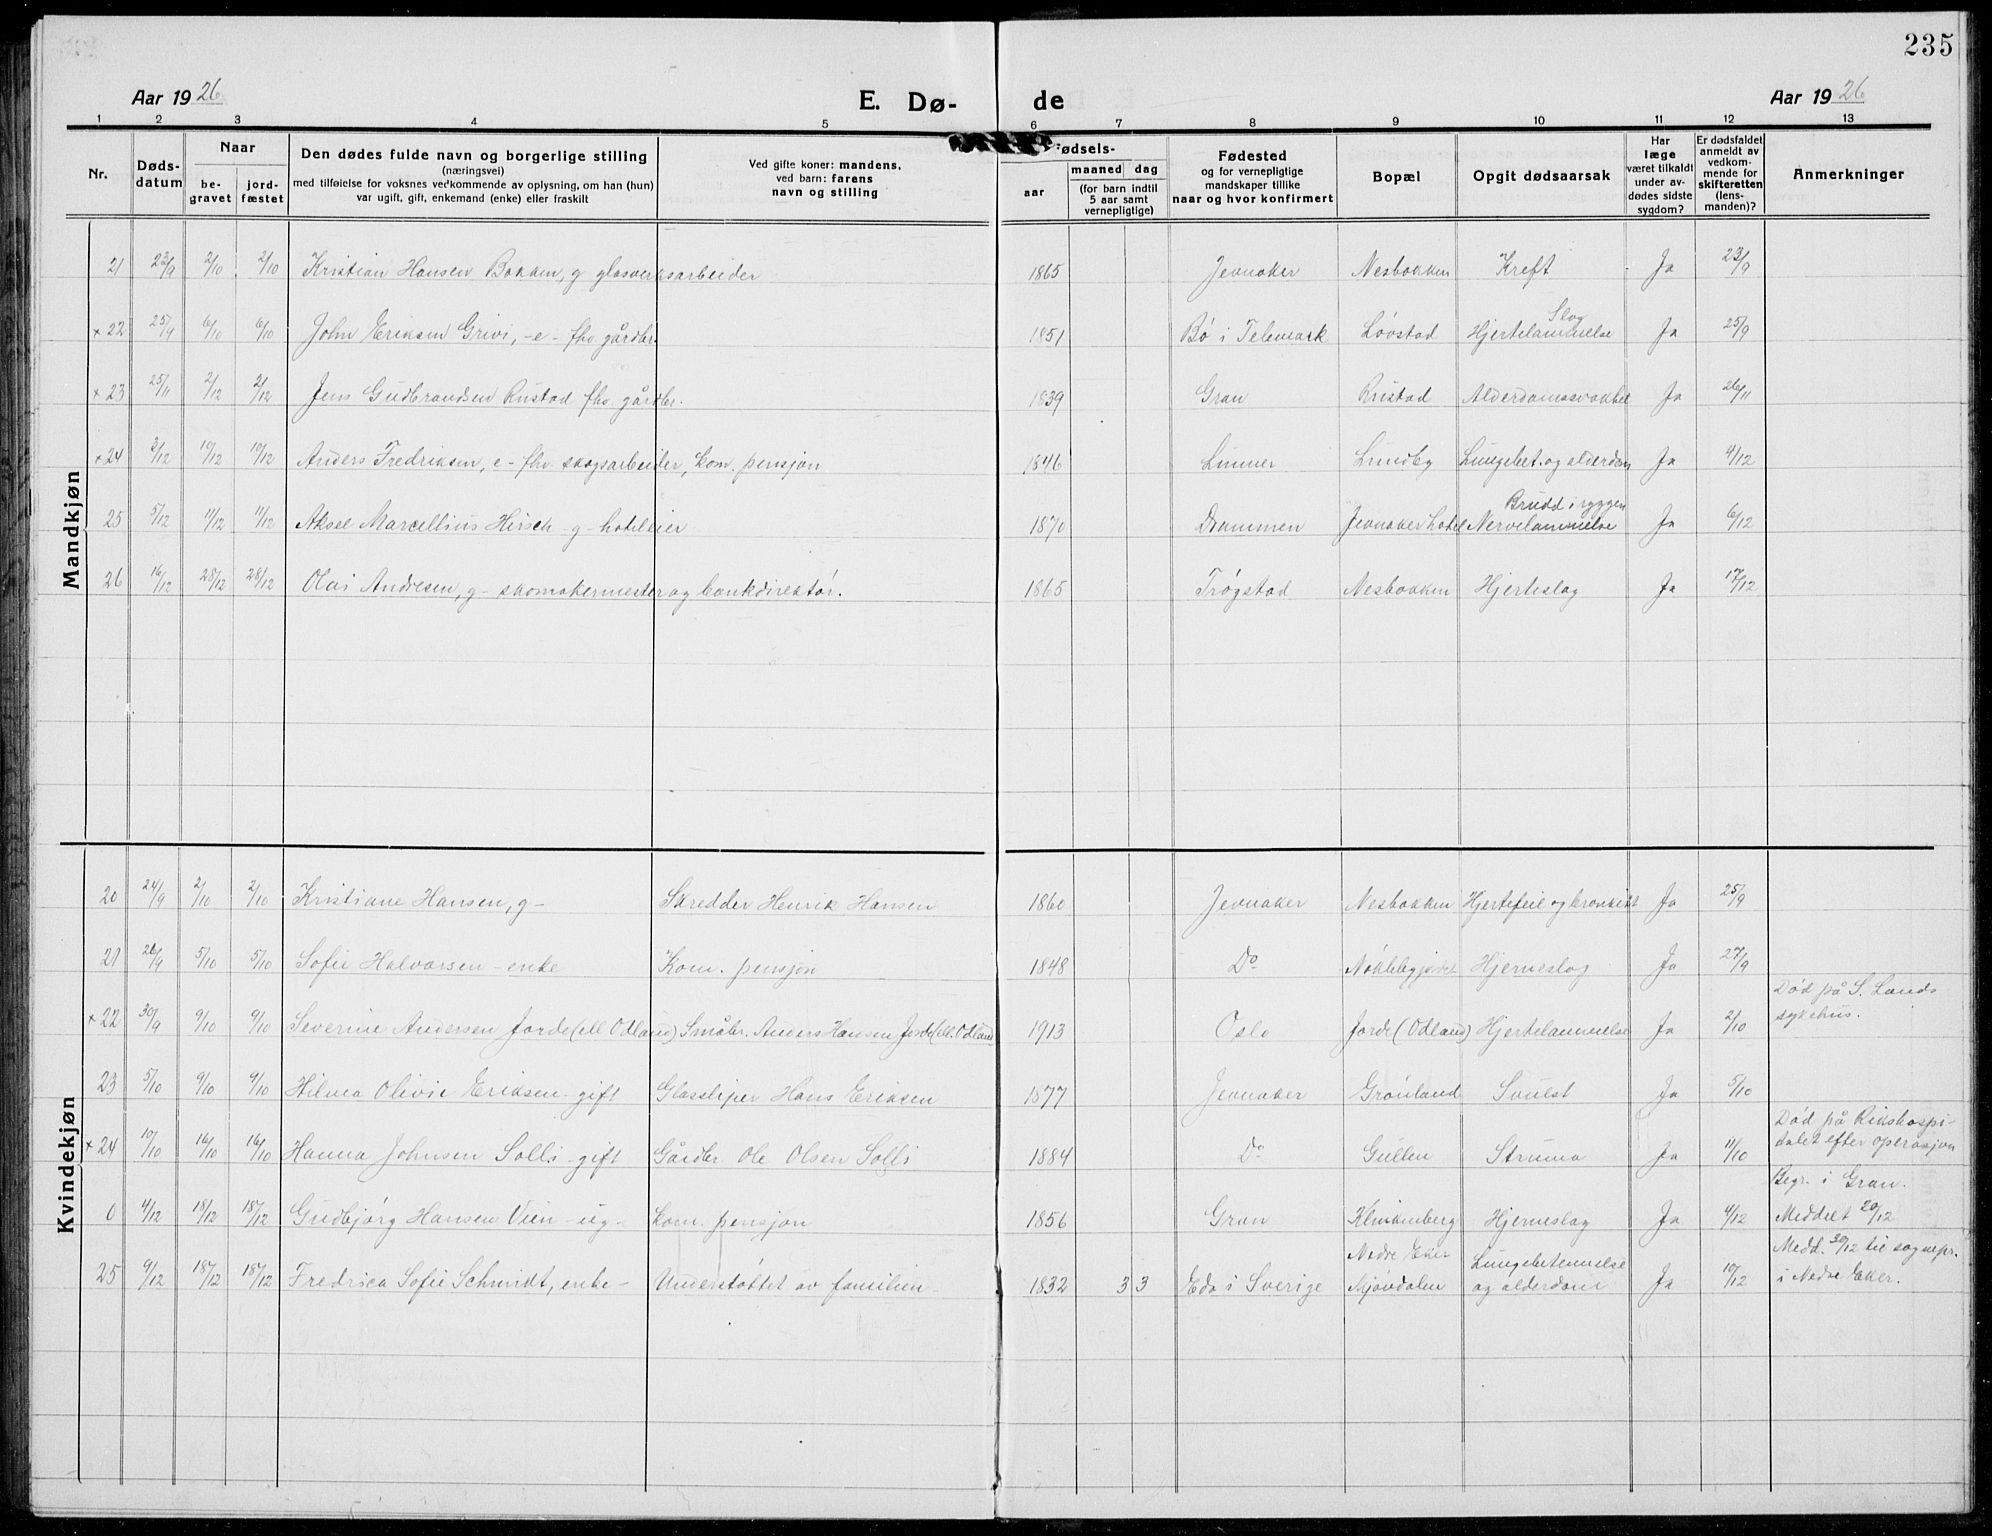 235
Aar 1926 E. Dø- de Aar 1926
1 2 3 4 5 6 7 8 9 10 11 12 13
Nr.
Døds-
datum
Naar
be-
gravet
jord-
fæstet
Den dødes fulde navn og borgerlige stilling
(næringsvei)
med tilføielse for voksnes vedkommende av oplysning, om han (hun)
var ugift, gift, enkemand (enke) eller fraskilt
Ved gifte koner: mandens,
ved barn: farens
navn og stilling
Fødsels-
aar
maaned dag
(for barn indtil
5 aar samt
vernepligtige)
Fødested
og for vernepligtige
mandskaper tillike
naar og hvor konfirmert
Bopæl
Opgit dødsaarsak
Har
læge
været tilkaldt
under av-
dødes sidste
sygdom?
Er dødsfaldet
anmeldt av
vedkom-
mende for
skifteretten
(lens-
manden)?
Anmerkninger
Mandkjøn
21 23/9 2/10 2/10 Kristian Hansen Bakken, g glasverksarbeider 1865 Jevnaker Nesbakken Kreft Ja 23/9
Slag
x 22 25/9 6/10 6/10 John Eriksen Grivi, -e- fhv. gårdbr. 1851 Bø i Telemark Løvstad Hjertelammelse Ja 25/9
x 23 25/11 2/12 2/12 Jens Gudbrandsen Rustad fhv. gårdbr. 1839 Gran Rustad Alderdomssvakhet Ja 26/11
x 24 3/12 10/12 10/12 Anders Fredriksen, e- fhv skogsarbeider, kom. pensjon 1846 Lunner Lundby Lungebet. og alderdom Ja 4/12
Brudd i ryggen
25 5/12 11/12 11/12 Aksel Marcellius Hirsch -g- hoteleier 1870 Drammen Jevnaker hotel Nervelammelse Ja 6/12
26 16/12 28/12 28/12 Olai Andresen, g- skomakermester og bankdirektør. 1865 Trøgstad Nesbakken Hjerteslag Ja 17/12
Kvindekjøn
20 24/9 2/10 2/10 Kristiane Hansen, g- Skredder Henrik Hansen 1860 Jevnaker Nesbakken Hjertefeil og bronkitt Ja 25/9
21 26/9 5/10 5/10 Sofie Halvorsen -enke Kom. pensjon 1848 Do Nøklebygjordet Hjerneslag Ja 27/9
Død på S. Lands
x 22 30/9 9/10 9/10 Severine Andersen Jorde (ell Odland) Småbr. Anders Hansen Jorde (ell. Odland) 1913 Oslo Jorde (Odland) Hjertelammelse Ja 2/10 sykehus.
23 5/10 9/10 9/10 Hilma Olivie Eriksen - gift Glassliper Hans Eriksen 1877 Jevnaker Grønland Svulst Ja 5/10
Død på Rikshospi-
x 24 10/10 16/10 16/10 Hanna Johnsen Solli - gift Gårdbr. Ole Olsen Solli 1884 Do Gullen Struma Ja 11/10 talet efter operasjon
Begr. i Gran.
0 4/12 18/12 18/12 Gudbjørg Hansen Vien -ug- kom. pensjon 1856 Gran Klinkenberg Hjerneslag Ja 4/12 Meddelt 20/12
Nedre Eker Lungebetennelse Medd. 30/12 til sognepr.
25 9/12 18/12 18/12 Fredrica Sofie Schmidt, enke- Understøttet av familien - 1832 3 3 Eda i Sverige Mjøndalen og alderdom Ja 10/12 i Nedre Eker.